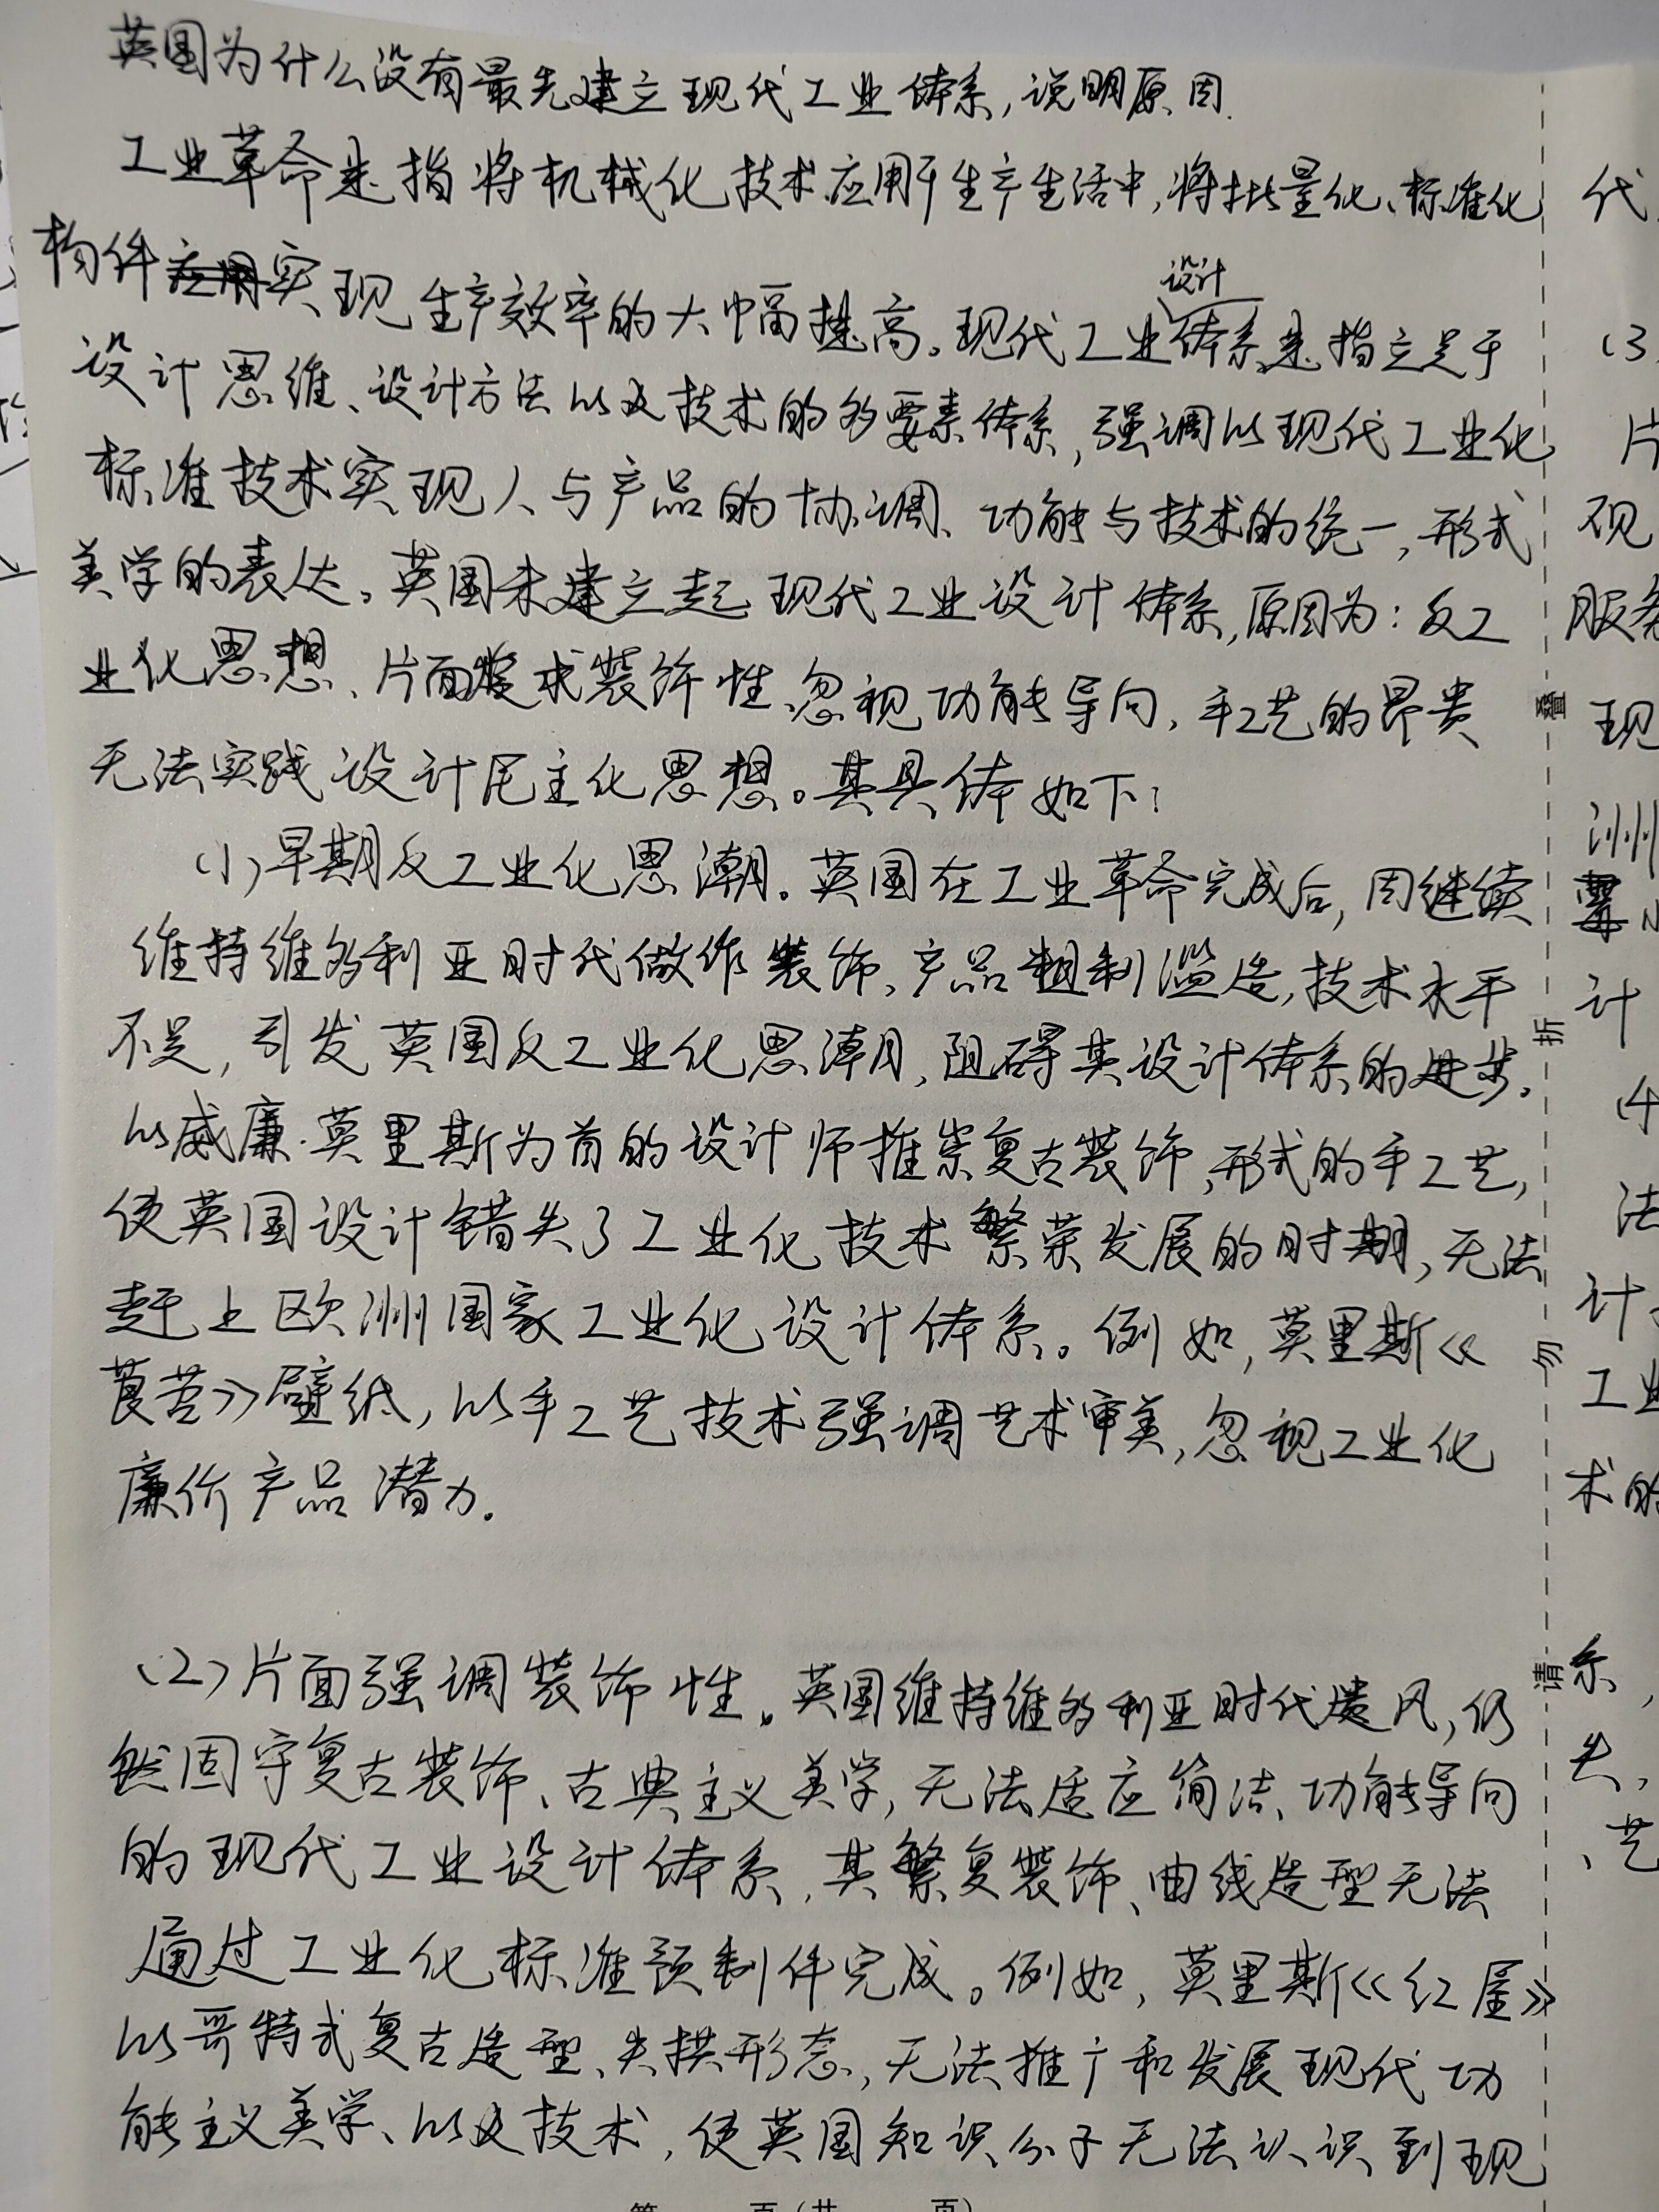 英国为什么没有最先建立现代工业体系,说明原因.
工业革命是指将机械化技术应用于生产生活中,将批量化、标准化
构件实现生产效率的大幅提高。现代工业设计体系是指立足于
设计思维、设计方法以及技术的多要素体系,强调以现代工业化
标准技术实现人与产品的协调、功能与技术的统一,形式
美学的表达。英国未建立起现代工业设计体系,原因为:反工
业化思想、片面追求装饰性、忽视功能导向、手工艺的昂贵
无法实践设计民主化思想。其具体如下:
(1)早期反工业化思潮。英国在工业革命完成后,因继续
维持维多利亚时代做作装饰、产品粗制滥造,技术水平
不足,引发英国反工业化思潮,阻碍其设计体系的进步。
以威廉·莫里斯为首的设计师推崇复古装饰,形式的手工艺,
使英国设计错失了工业化技术繁荣发展的时期,无法
赶上欧洲国家工业化设计体系。例如,莫里斯《
茛苕》壁纸,以手工艺技术强调艺术审美,忽视工业化
廉价产品潜力。
(2)片面强调装饰性。英国维持维多利亚时代遗风,仍
然固守复古装饰、古典主义美学,无法适应简洁、功能导向
的现代工业设计体系,其繁复装饰、曲线造型无法
通过工业化标准预制件完成。例如,莫里斯《红屋》
以哥特式复古造型、尖拱形态,无法推广和发展现代功
能主义美学、以及技术,使英国知识分子无法认识到现
第 页(共 页)
叠
折
勿
请
代
(3
片
视
服务
现
洲
计
(4
法
计
工业
术的
系,
失,
、艺